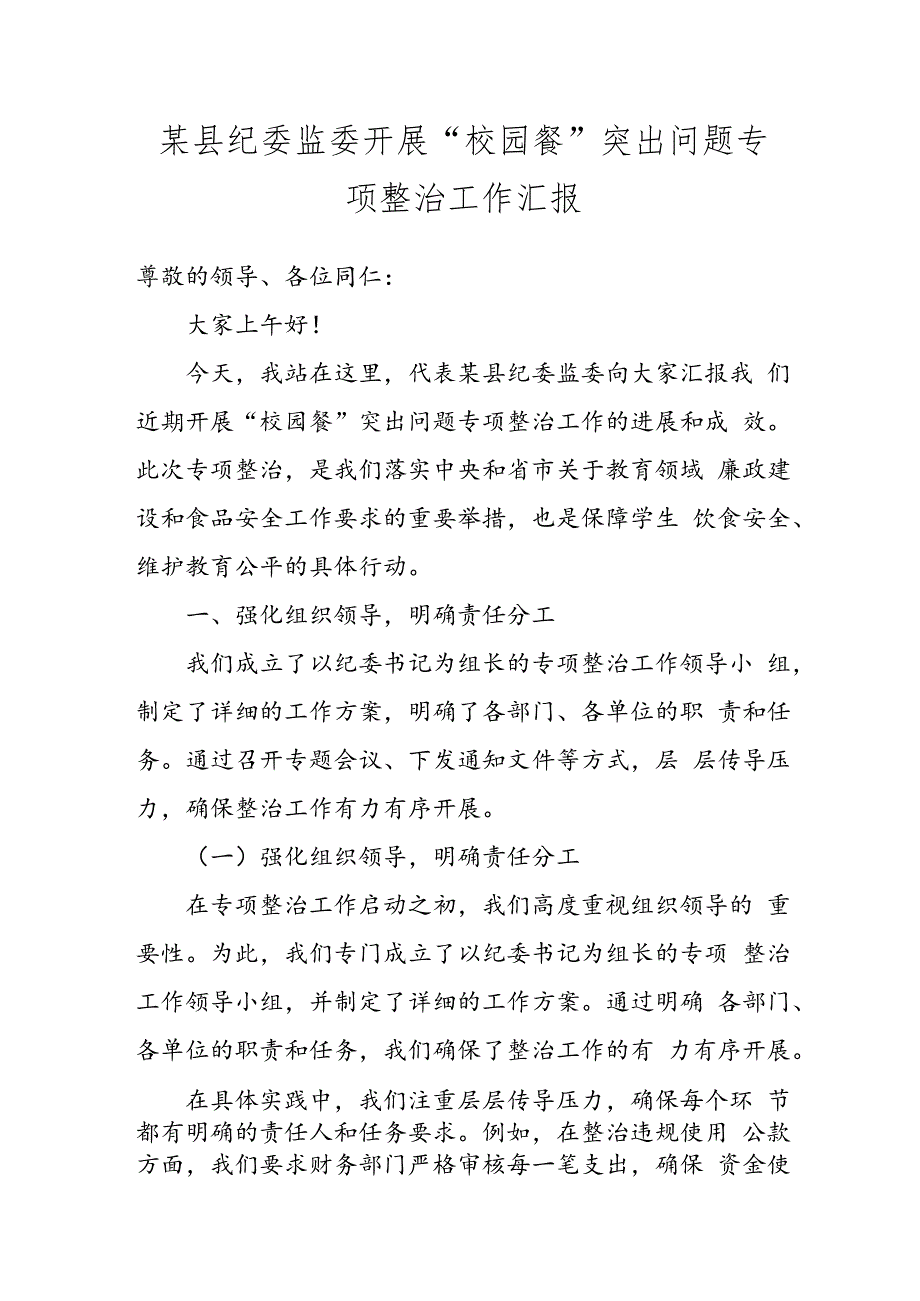 某县纪委监委开展“校园餐”突出问题专
项整治工作汇报
尊敬的领导、各位同仁：
大家上午好！
今天，我站在这里，代表某县纪委监委向大家汇报我 们
近期开展“校园餐”突出问题专项整治工作的进展和成 效。
此次专项整治，是我们落实中央和省市关于教育领域 廉政建
设和食品安全工作要求的重要举措，也是保障学生 饮食安全、
维护教育公平的具体行动。
一、强化组织领导，明确责任分工
我们成立了以纪委书记为组长的专项整治工作领导小 组，
制定了详细的工作方案，明确了各部门、各单位的职 责和任
务。通过召开专题会议、下发通知文件等方式，层 层传导压
力，确保整治工作有力有序开展。
（一）强化组织领导，明确责任分工
在专项整治工作启动之初，我们高度重视组织领导的 重
要性。为此，我们专门成立了以纪委书记为组长的专项 整治
工作领导小组，并制定了详细的工作方案。通过明确 各部门、
各单位的职责和任务，我们确保了整治工作的有 力有序开展。
在具体实践中，我们注重层层传导压力，确保每个环 节
都有明确的责任人和任务要求。例如，在整治违规使用 公款
方面，我们要求财务部门严格审核每一笔支出，确保 资金使